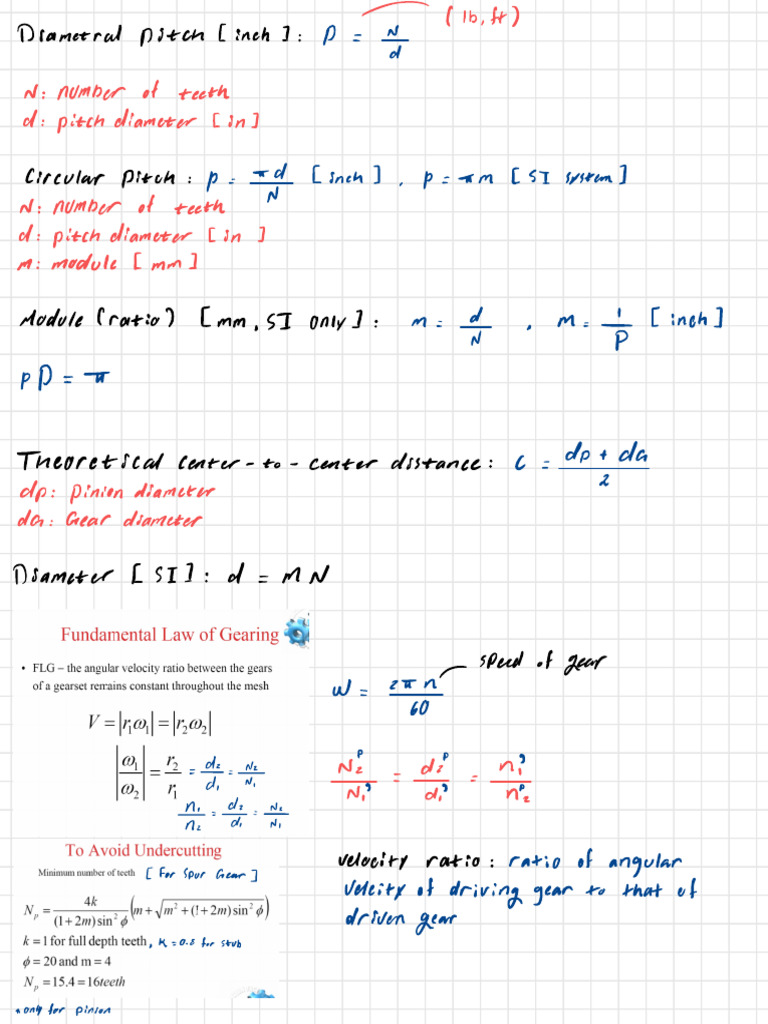 (lb, ft)
Diametral pitch [inch]: P = N/d
N: number of teeth
d: pitch diameter [in]
Circular pitch: p = πd/N [inch], p = πm [SI system]
N: number of teeth
d: pitch diameter [in]
m: module [mm]
Module (ratio) [mm, SI only]: m = d/N, m = 1/P [inch]
pP = π
Theoretical center-to-center distance: C = (dp + dG)/2
dp: Pinion diameter
dG: Gear diameter
Diameter [SI]: d = MN
Fundamental Law of Gearing
• FLG – the angular velocity ratio between the gears
of a gearset remains constant throughout the mesh
V = |r₁ω₁| = |r₂ω₂|
|ω₁/ω₂| = r₂/r₁ = d₂/d₁ = N₂/N₁
n₁/n₂ = d₂/d₁ = N₂/N₁
speed of gear
ω = 2πn/60
N₂ᵖ/N₁ᵍ = d₂ᵖ/d₁ᵍ = n₁ᵍ/nᵖ₂
To Avoid Undercutting
Minimum number of teeth [For Spur Gear]
Nₚ = 4k/((1+2m)sin²ϕ) (m + √(m² + (!+2m)sin²ϕ))
k = 1 for full depth teeth, K = 0.8 for stub
ϕ = 20 and m = 4
Nₚ = 15.4 = 16teeth
*only for pinion
velocity ratio: ratio of angular
velcity of driving gear to that of
driven gear